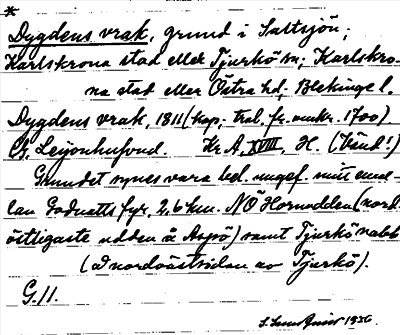 *
Dygdens vrak, grund i Saltsjön;
Karlskrona stad eller Tjurkö sn; Karlskro-
na stad eller Östra hd, Blekinge l.
Dygdens vrak, 1811 (kop. tral. fr. omkr. 1700)
G. Leijonhufvud. Kr. A, XVIII, H. (Vänd!)
Grundet synes vara bel. ungef. mitt emel-
lan Godnatts fyr, 2,6 km. NÖ Hornudden (nord-
östligaste udden å Aspö) samt Tjurkö nabb
(å nordvästsidan av Tjurkö).
G. 11.
1936